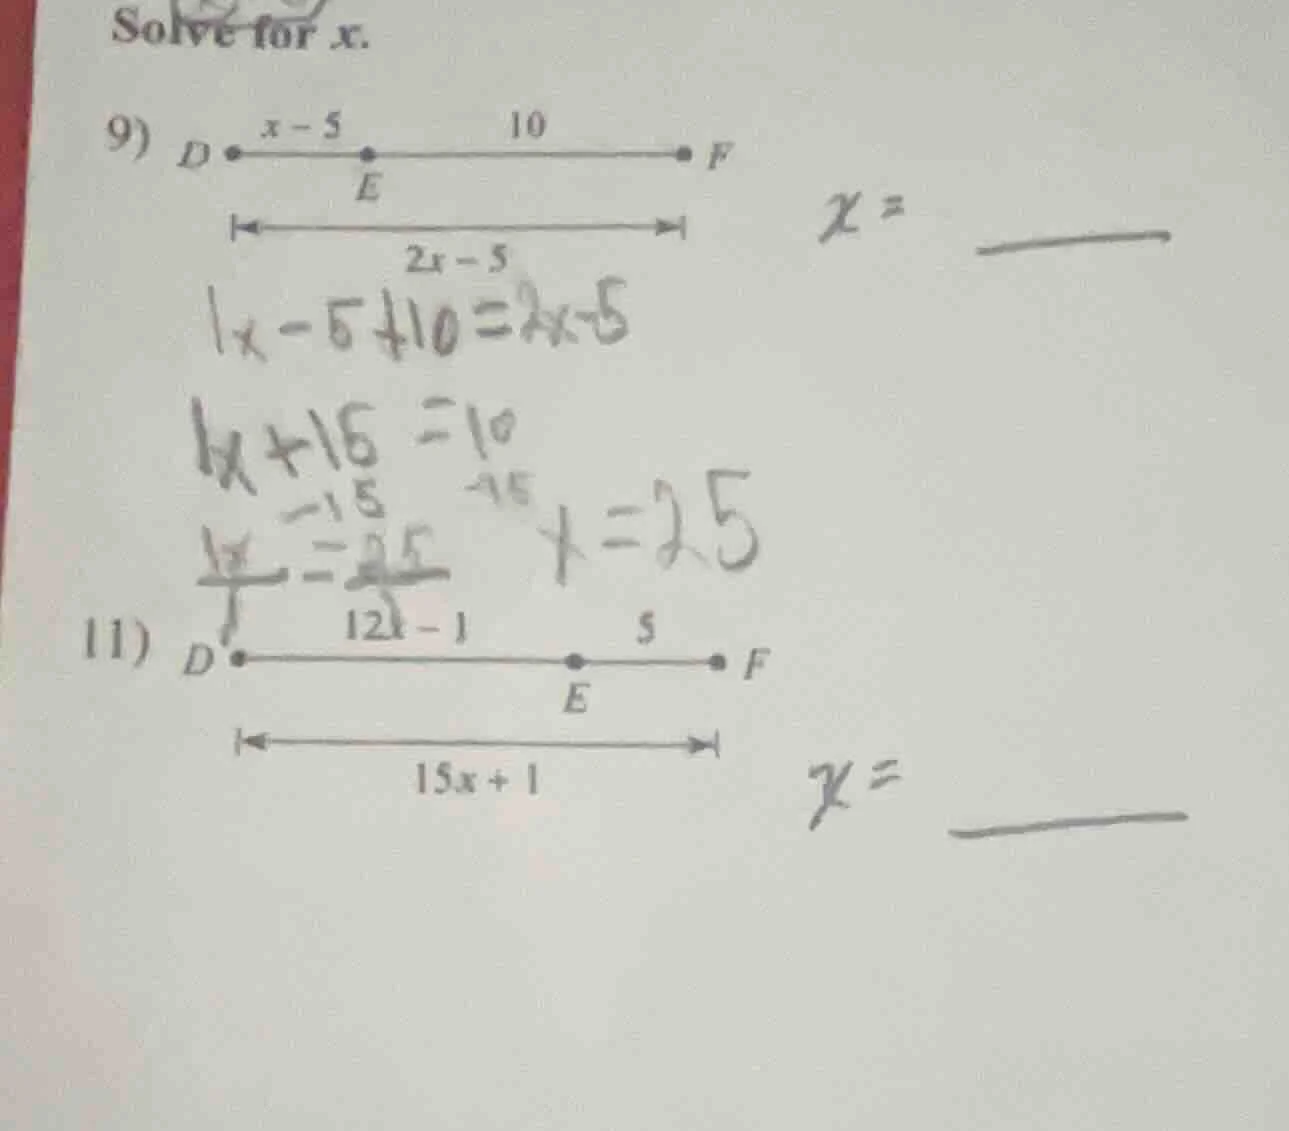 Solve for x.
9) D x - 5 E 10 F
2x - 5
x =
1x - 5 + 10 = 2x - 5
1x + 15 = 10
- 15 - 15
1x = 25
1
x = 25
11) D 12x - 1 E 5 F
15x + 1
x =